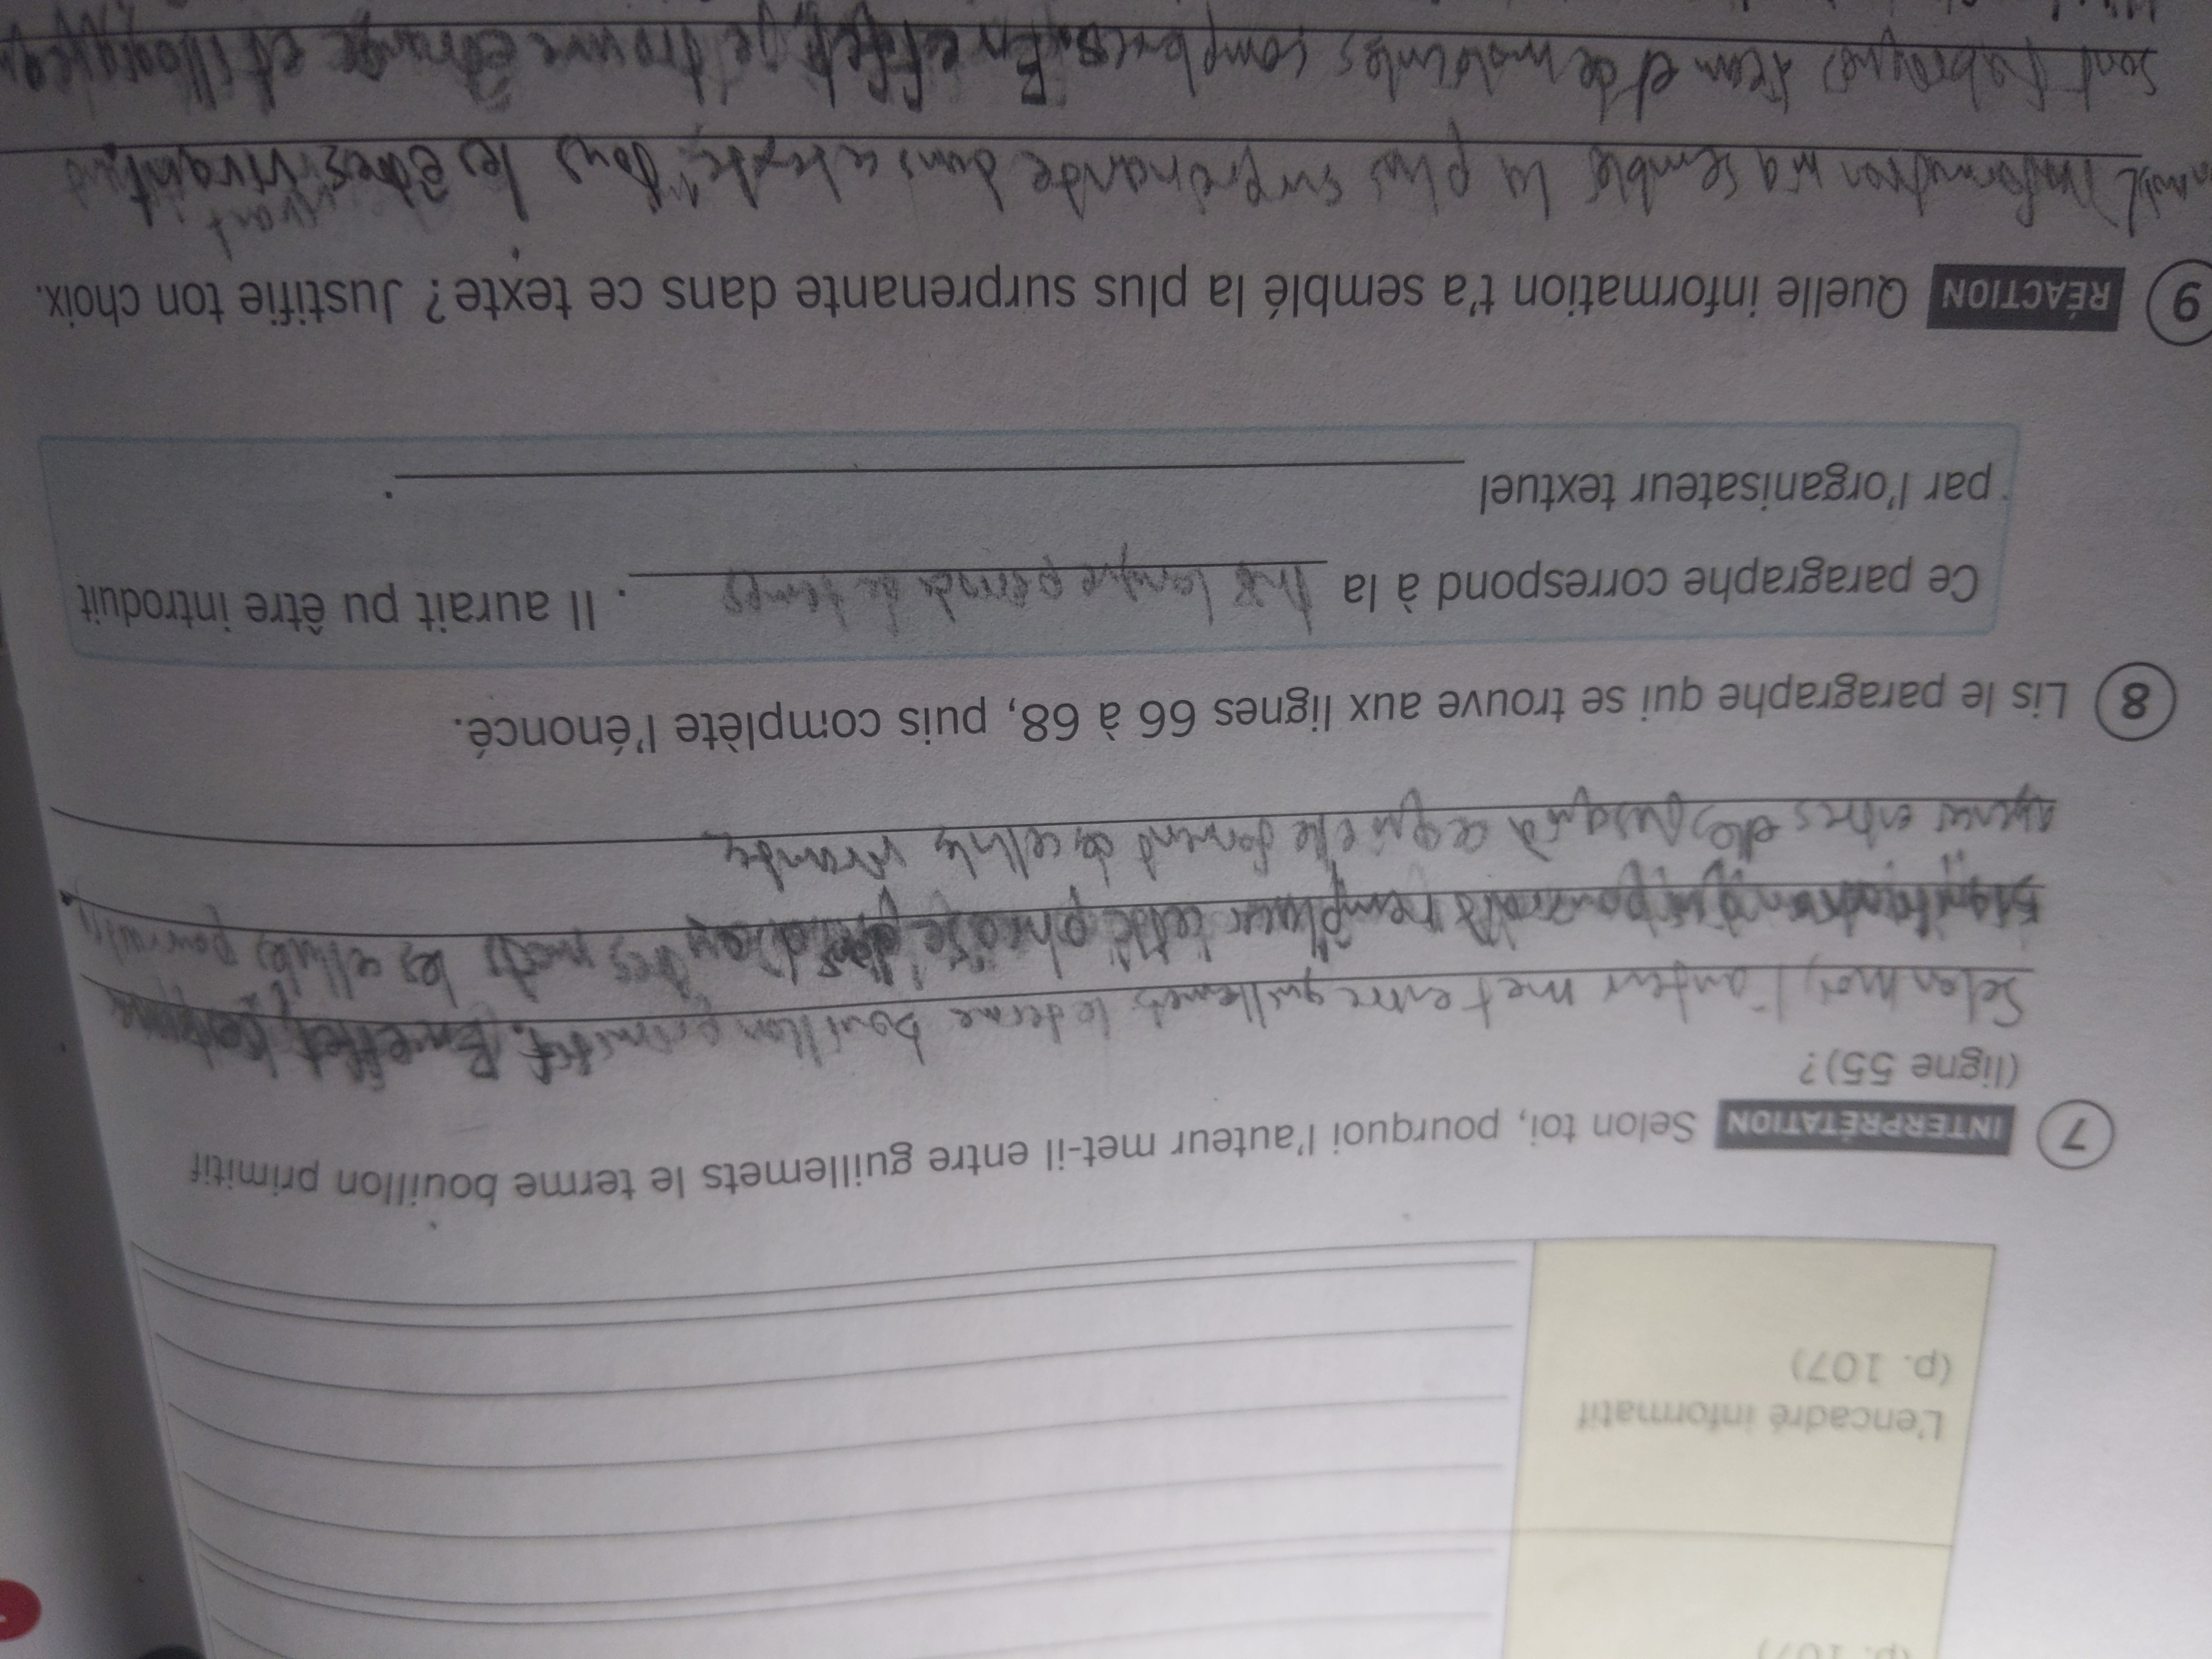 (p. 107)
L'encadré informatif
(p. 107)
7 INTERPRÉTATION Selon toi, pourquoi l'auteur met-il entre guillemets le terme bouillon primitif
(ligne 55)?
Selon moi, l'auteur met entre guillemets le terme bouillon primitif. En effet,
qui pourrait remplacer cette phrase ces mots les cellules pourrait s
entres elles jusqu'à ce qu'elle forment des cellule vivante
8 Lis le paragraphe qui se trouve aux lignes 66 à 68, puis complète l'énoncé.
Ce paragraphe correspond à la très longue période de temps. Il aurait pu être introduit
par l'organisateur textuel .
9 RÉACTION Quelle information t'a semblé la plus surprenante dans ce texte? Justifie ton choix.
L'information m'a semblé la plus surprenante dans ce texte, "Tous les êtres vivant
sont d'eau et de molécules complexes. En effet, je trouve étrange et illogique